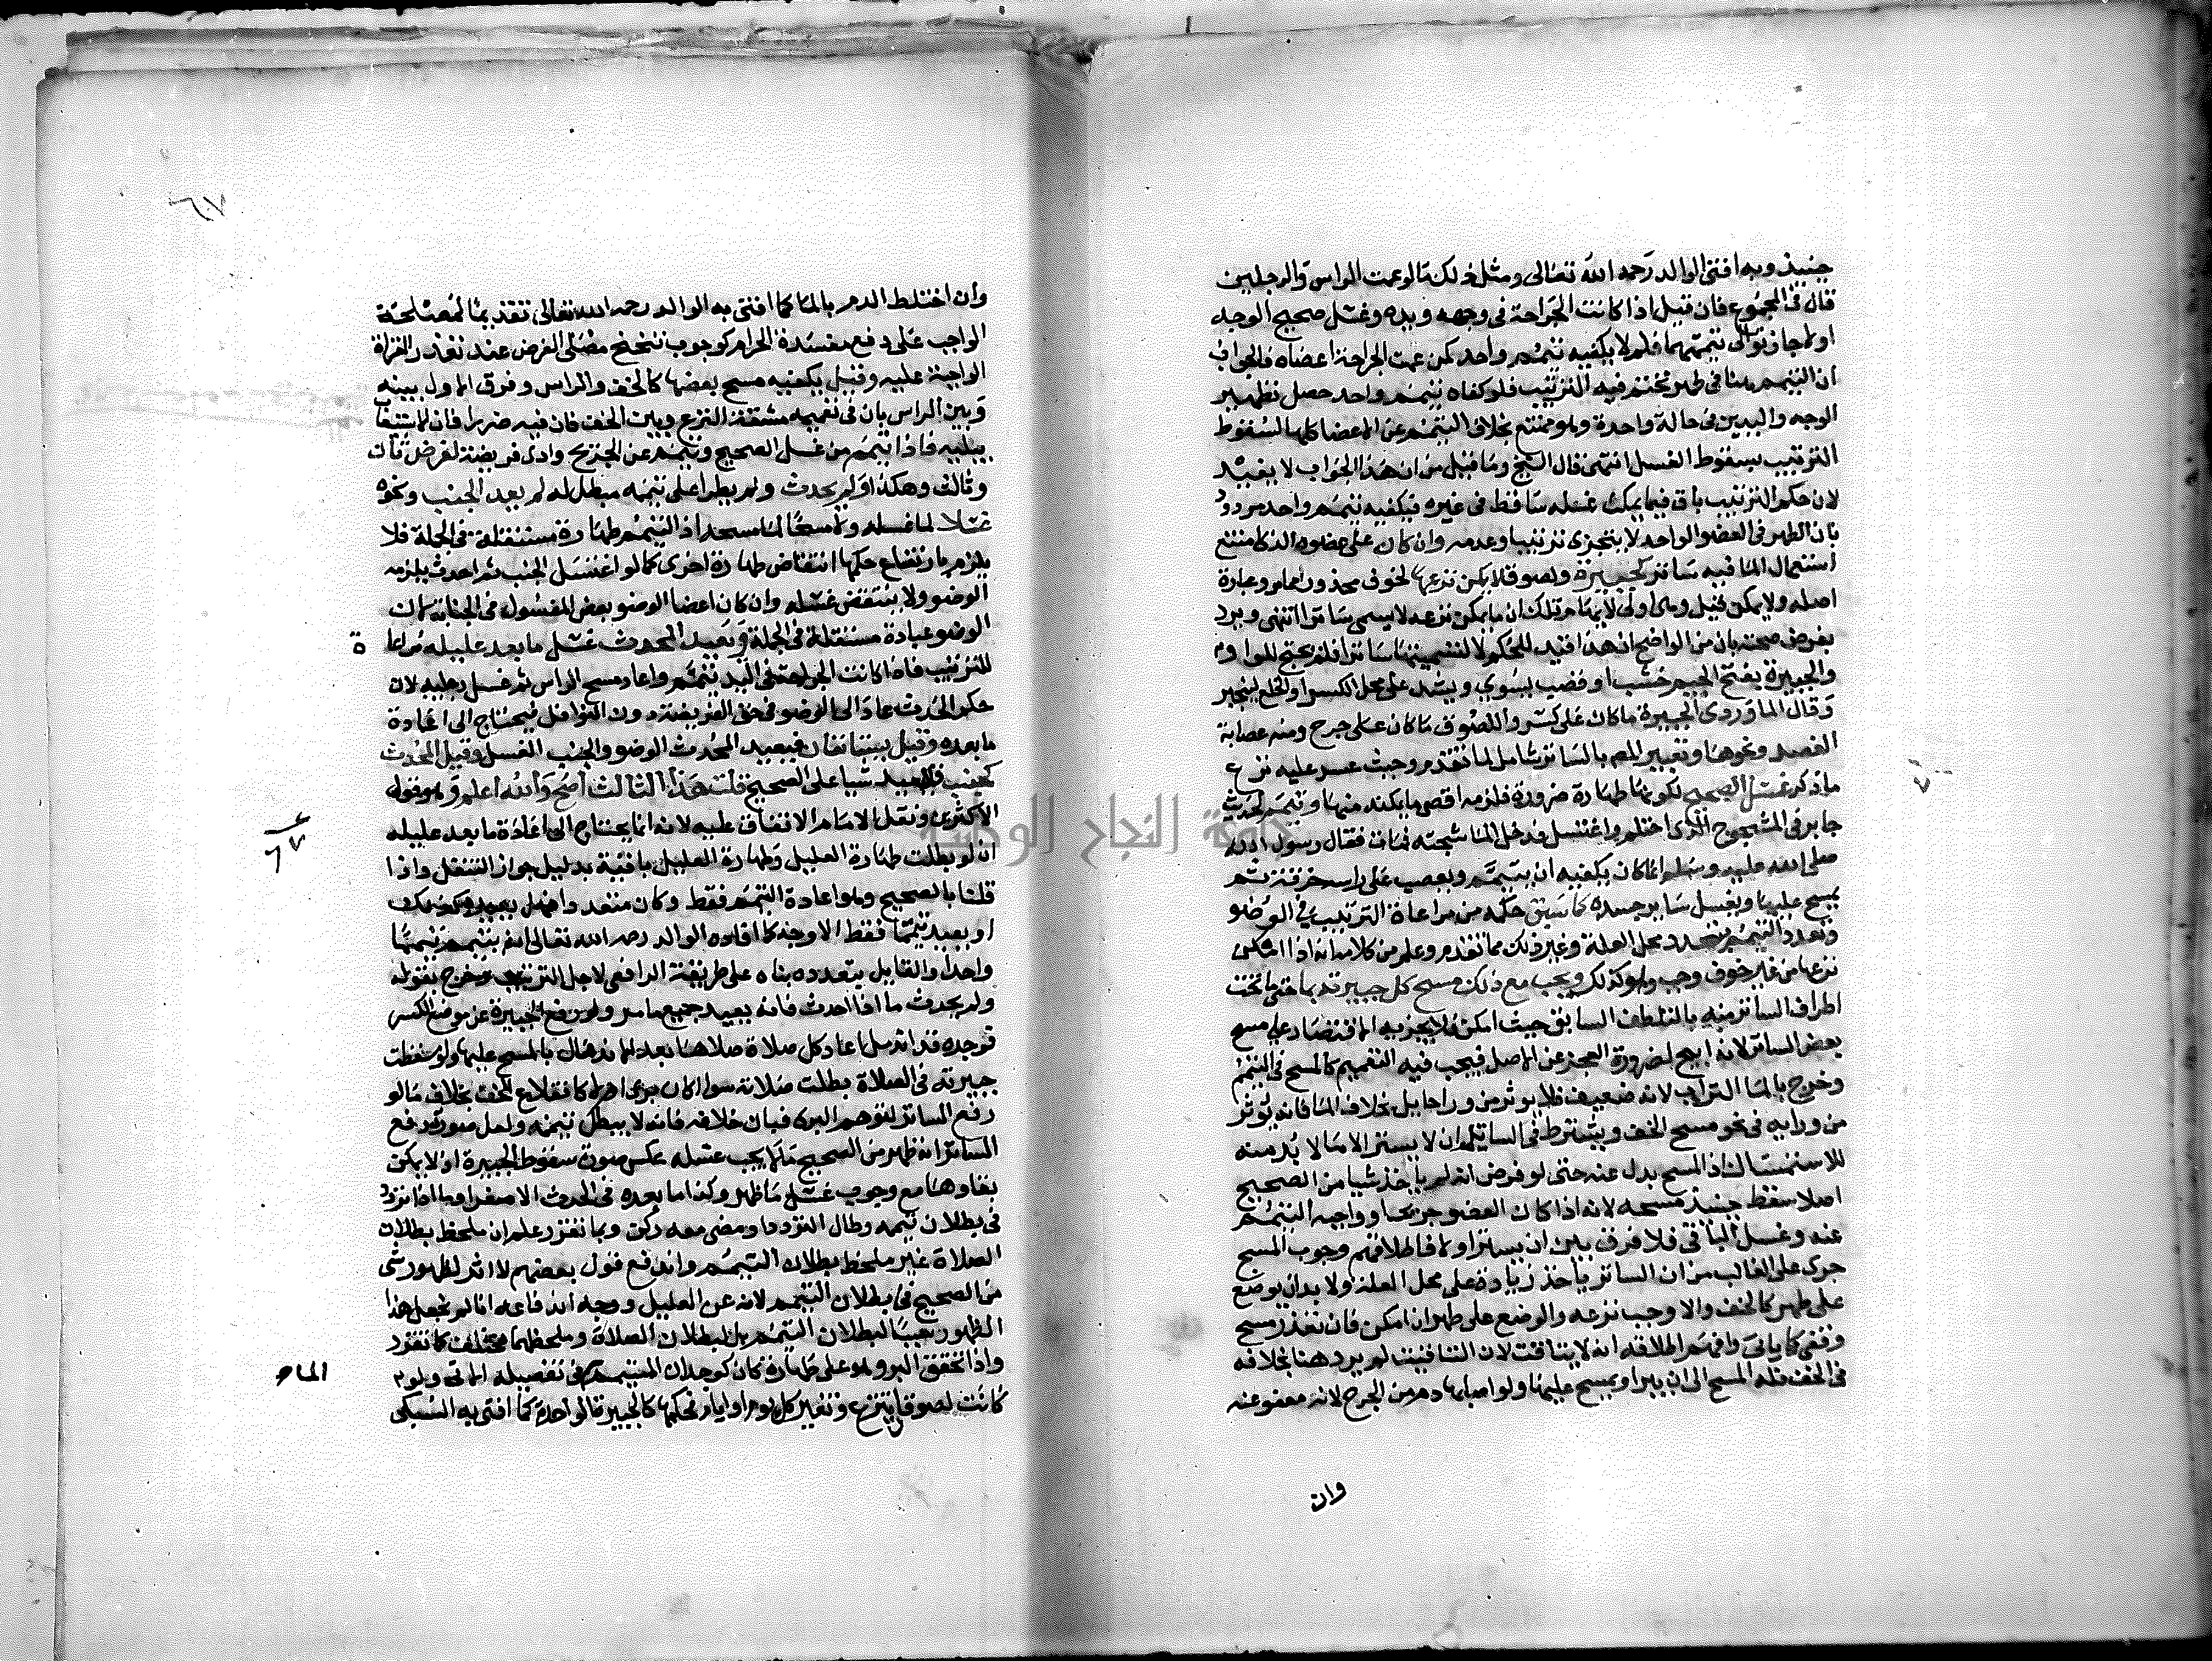 حينيذ وبه افتى الوالد رحمه الله تعالى ومثل ذلك مالو عمت الراس والرجلين
قال في المجموع فان قيل اذا كانت الجراحة في وجهه ويده وغسل صحيح الوجه
اولا جاز توالي تيممهما فلم لا يكفيه تيمم واحد كمن عمت الجراحة اعضاه فالجواب
ان التيمم هنا في طهر تحتم فيه الترتيب فلو كفاه تيمم واحد حصل تطهير
الوجه واليدين في حالة واحدة وهو ممتنع بخلاف التيمم عن الاعضا كلها لسقوط
الترتيب بسقوط الغسل انتهى قال الشيخ وما قيل من ان هذا الجواب لا يفيد
لان حكم الترتيب باق فيما يمكن غسله ساقط في غيره فيكفيه تيمم واحد مردود
بان الطهر في العضو الواحد لا يتجزى ترتيبا وعدمه وان كان على عضوه الذي امتنع
استعمال الما فيه ساتر كجبيرة ولصوق لا يمكن نزعها لخوف محذور مما مر وعبارة
اصله ولا يمكن قيل وهي اولى لايهام تلك ان ما يمكن نزعه لا يسمى ساترا انتهى ويرد
بفرض صحته بان من الواضح ان هذا قيد للحكم لا لتسميتها ساترا فلم يحتج للواو
والجبيرة بفتح الجيم خشب او قصب يسوي ويشد على محل الكسر او الخلع لينجبر
وقال الماوردي الجبيرة ما كان على كسر واللصوق ما كان على جرح ومنه عصابة
الفصد ونحوها وتعبير المص بالساتر شامل لما تقدم وحيث عسر عليه نزع
ما ذكر غسل الصحيح لكونها طهارة ضرورة فلزمه اقصى ما يمكنه منها وتيمم لحديث
جابر في المشجوج الذي احتلم واغتسل فدخل الما شجته فمات فقال رسول الله
صلى الله عليه وسلم انما كان يكفيه ان يتيمم ويعصب على راسه خرقة ثم
يمسح عليها ويغسل ساير جسده كما سبق حكمه من مراعاة الترتيب في الوضو
وتعدد التيمم بتعدد محل العلة وغير ذلك مما تقدم وعلم من كلامه انه اذا امكن
نزعها من غير خوف وجب وهو كذلك ويجب مع ذلك مسح كل جبيرته بما حتى ما تحت
اطراف الساتر منه بالتلطف السابق حيث امكن فلا يجزيه الاقتصار على مسح
بعض الساتر لانه ابيح لضرورة العجز عن الاصل فيجب فيه التعميم كالمسح في التيمم
وخرج بالما التراب لانه ضعيف فلا يوثر من ورا حايل بخلاف الما فانه يوثر
من ورايه في نحو مسح الخف ويشترط في الساتر ان لا يستر الا ما لا بد منه
للاستمساك اذ المسح بدل عنه حتى لو فرض انه لم ياخذ شيا من الصحيح
اصلا سقط حينيذ مسحه لانه اذا كان العضو جريحا وواجبه التيمم
عنه وغسل الباقي فلا فرق بين ان يستر او لا فاطلاقهم وجوب المسح
جرى على الغالب من ان الساتر ياخذ زيادة على محل العلة ولا بد ان يوضع
على طهر كالخف والا وجب نزعه والوضع على طهر ان امكن فان تعذر مسح
وقضى كما ياتي وافهم اطلاقه انه لا يتاقت لان التاقيت لم يرد هنا بخلافه
في الخف فله المسح الى ان يبرا ويمسح عليها ولو اصابها دم من الجرح لانه معفو عنه
وان
وان اختلط الدم بالما كما افتى به الوالد رحمه الله تعالى تقديما لمصلحة
الواجب على دفع مفسدة الحرام كوجوب تنحنح مصلى الفرض عند تعذر القراة
الواجبة عليه وقيل يكفيه مسح بعضها كالخف والراس وفرق الاول بينه
وبين الراس بان في تعميمه مشقة النزع وبين الخف فان فيه ضررا فان الاستيعاب
يبليه فاذا تيمم من غسل الصحيح وتيمم عن الجريح وادى فريضة لفرض ثان
وثالث وهكذا ولم يحدث ولم يطرا على تيممه مبطل له لم يعد الجنب ونحوه
غسلا لما غسله ولا مسحا لما مسحه اذ التيمم طهارة مستقلة في الجملة فلا
يلزم بارتفاع حكمها انتقاض طهارة اخرى كما لو اغتسل الجنب ثم احدث يلزمه
الوضو ولا ينتقض غسله وان كان اعضا الوضو بعض المغسول في الجنابة لان
الوضو عبادة مستقلة في الجملة ويعيد المحدث غسل ما بعد عليله مراعا
ة
للترتيب فاذا كانت الجراحة في اليد تيمم واعاد مسح الراس ثم غسل رجليه لان
حكم الحدث عاد الى الوضو في حق الفريضة دون النوافل فيحتاج الى اعادة
ما بعده وقيل يستانفان فيعيد المحدث الوضو والجنب الغسل وقيل المحدث
كجنب فلا يعيد شيا على الصحيح قلت هذا الثالث اصح والله اعلم وهو قول
الاكثرين ونقل الامام الاتفاق عليه لانه انما يحتاج الى اعادة ما بعد عليله
ان لو بطلت طهارة العليل وطهارة العليل باقية بدليل جواز التنفل واذا
قلنا بالصحيح وهو اعادة التيمم فقط وكان متعددا فهل يعيده كذلك
او يعيد تيمما فقط الاوجه كما افاده الوالد رحمه الله تعالى انه يتيمم تيمما
واحدا والقايل بتعدده بناه على طريقة الرافعي لاجل الترتيب وخرج بقوله
ولم يحدث ما اذا احدث فانه يعيد جميع ما مر ولو رفع الجبيرة عن موضع الكسر
فوجده قد اندمل اعاد كل صلاة صلاها بعد الاندمال بالمسح عليها ولو سقطت
جبيرته في الصلاة بطلت صلاته سوا اكان برى ام لا كانقلاع الخف بخلاف مالو
رفع الساتر لتوهم البرء فبان خلافه فانه لا يبطل تيممه ولعل صورة رفع
الساتر انه ظهر من الصحيح ما لا يجب غسله عكس صورة سقوط الجبيرة اذ لا يمكن
بقاوها مع وجوب غسل ما ظهر وكذا ما بعده في الحدث الاصغر اما اذا تردد
في بطلان تيممه وطال التردد او مضى معه ركن وبما تقرر علم ان ملحظ بطلان
الصلاة غير ملحظ بطلان التيمم واندفع قول بعضهم لا اثر لظهور شي
من الصحيح في بطلان التيمم لانه عن العليل ووجه اندفاعه انا لم نجعل هذا
الظهور سببا لبطلان التيمم بل لبطلان الصلاة وملحظهما مختلف كما تقرر
واذا تحقق البرء وهو على طهارة كان كوجدان المتيمم في تفصيله الاتي ولو
الما
كانت لصوقا ينزع ويغير كل يوم او ايام فحكمها كالجبيرة الواحدة كما افتى به السبكي
٦٧
جامعة النجاح الوطنية